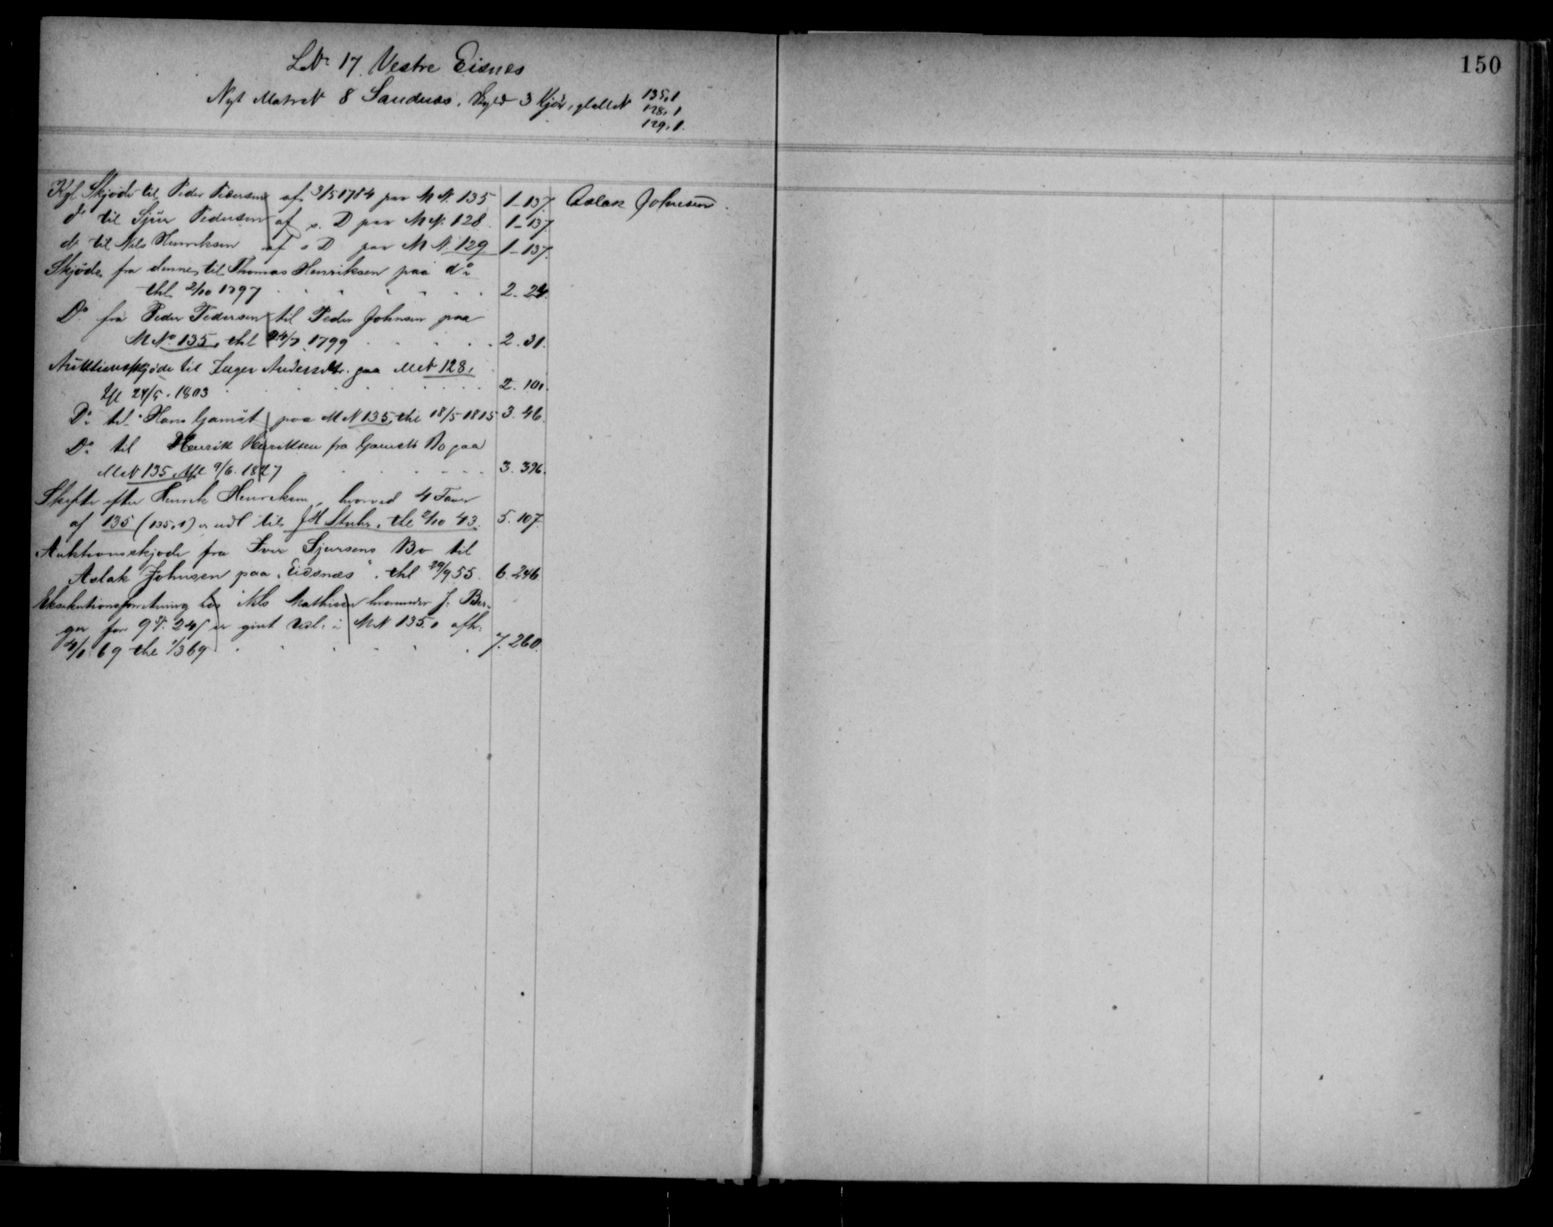 150
LNr 17 Vestre Eidnes
Nyt MatrN 8 Sandnes. Skyld 3 Kjör, gl MN 135,1
128,1
129,1.
Kgl Skjöde til Peder Pedersen af 3/5 1784 paa M N. 135 1-137. Aslak Johnsen.
do til Sjur Pedersen af s. D paa M N. 128. 1-137
do til Nils Henriksen af s D paa M N. 129 1-137.
Skjöde fra denne til Thomas Henriksen paa do
thl. 2/10 1797 2. 24.
Do fra Peder Pedersen til Peder Johnsen paa
M No 135, thl 1799 2. 31.
Auktionsskjöde til Anders paa MN 128.
24/5. 1803 2. 101.
Do til Hans Gamst paa M N 135, thl 18/5 1815 3. 46.
Do til Henrik Henriksen fra Gamsts Bo paa
MN 135 9/6. 1827 3. 396.
Skifte efter Henrik Henriksen, hvorved 4
af 135 (135,1) er udl til J H Stuhr, thl 2/10 43. 5. 107.
Auktionsskjöde fra Iver Sjursens Bo til
Aslak Johnsen paa "Eidsnæs". thl 29/9 55. 6. 246
Eksekutionsforretning hos Nils Mathisen J. Ber-
ger for 24/ er gjort Udl. i MN 135,1 afh.
69 thl 1/3 69 7. 260.